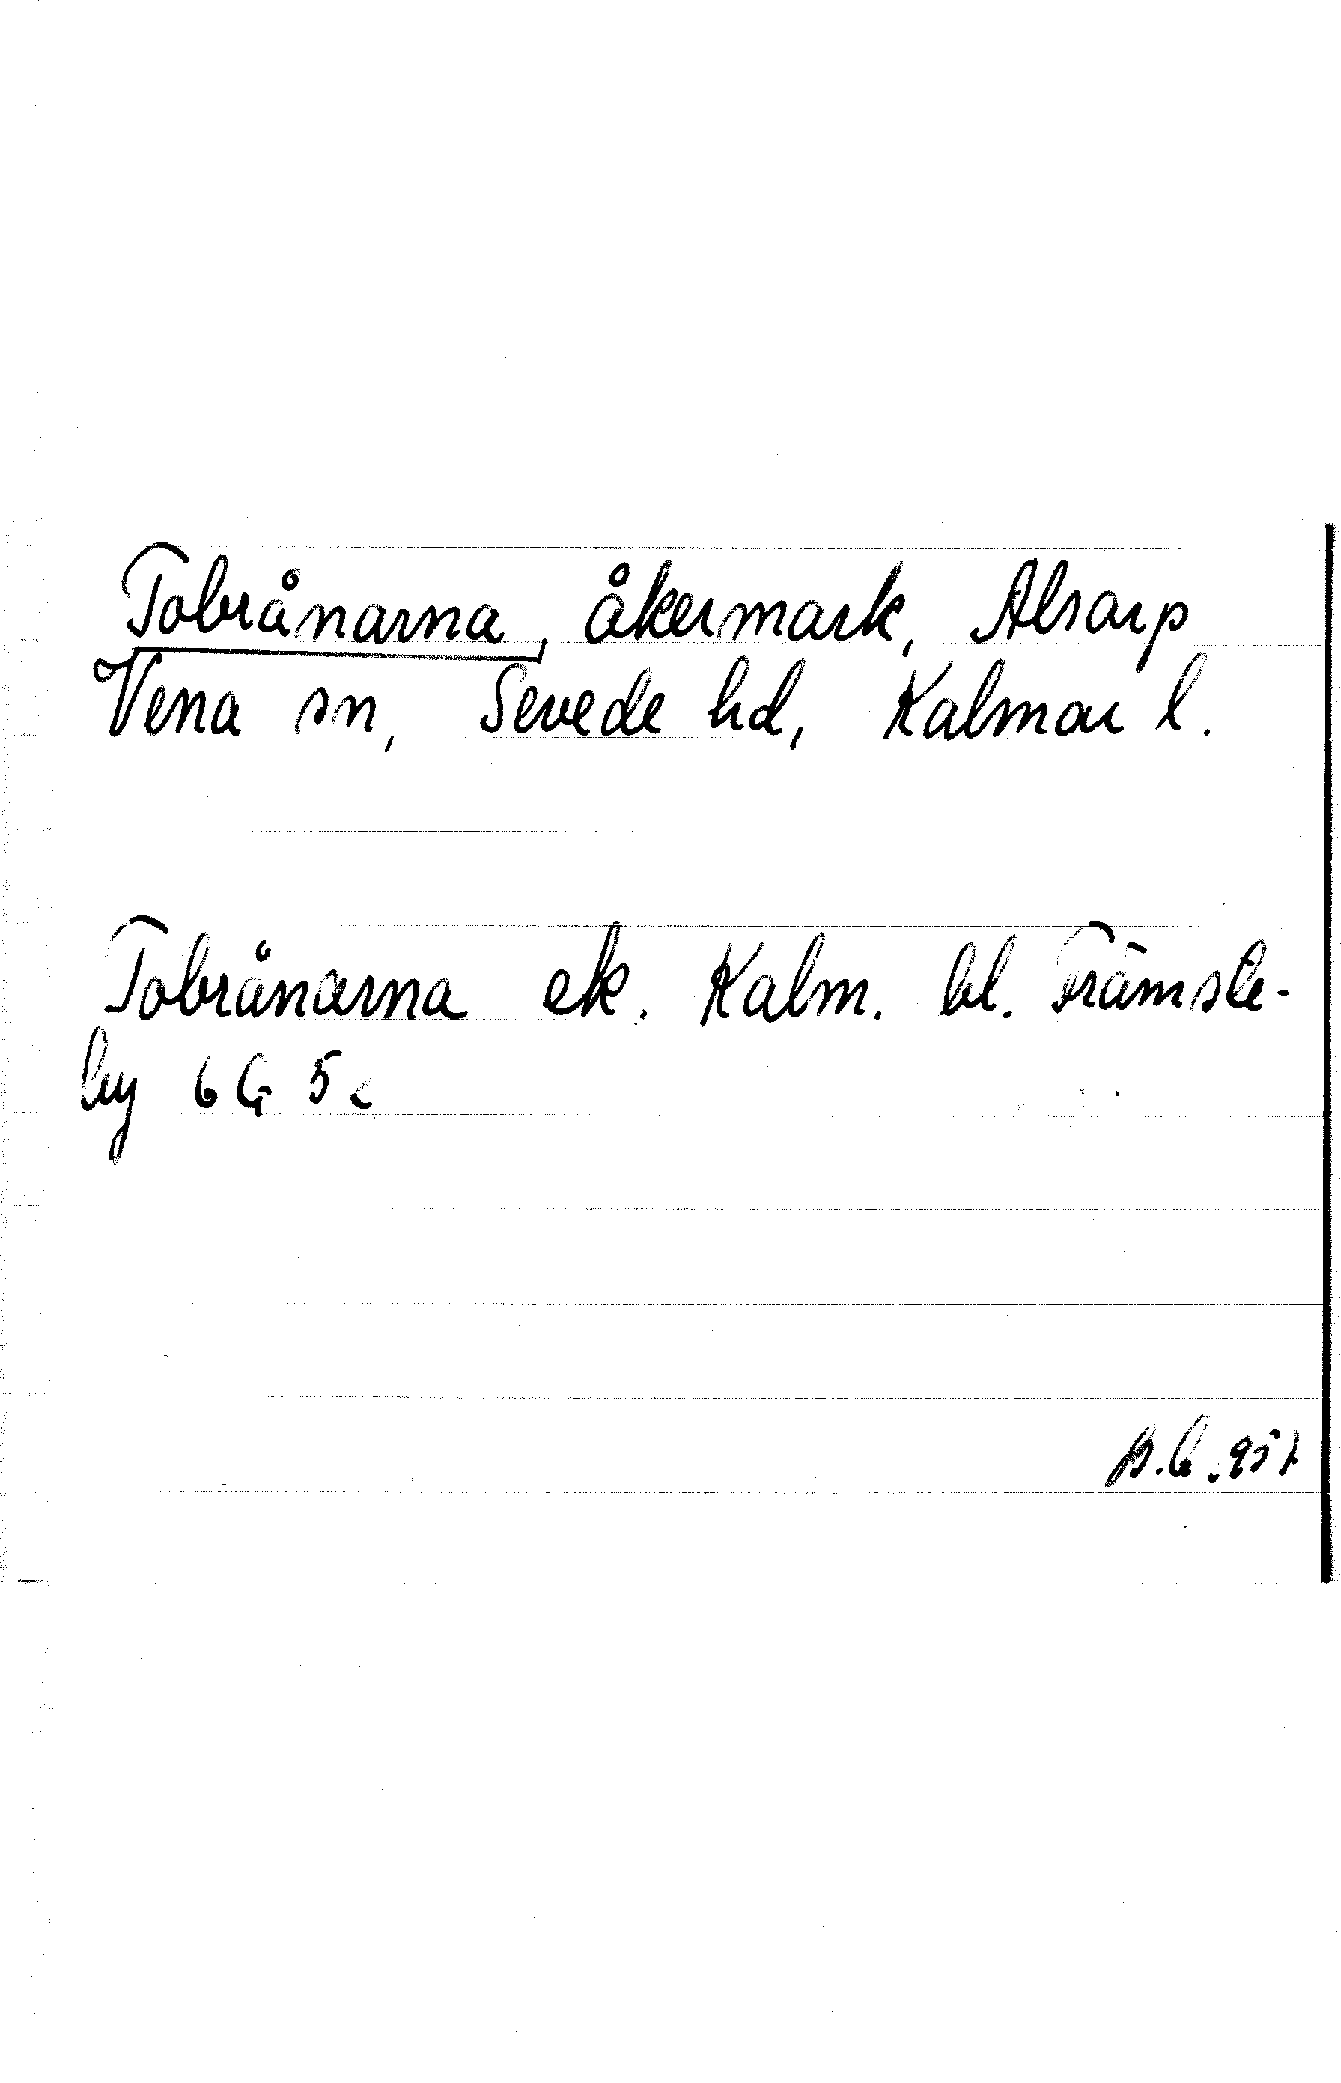 Tobrånarna, åkermark, Alsarp
Vena sn, Sevede hd, Kalmar l.
Tobrånarna ek. Kalm. bl. Främste-
by 6 G 5 c